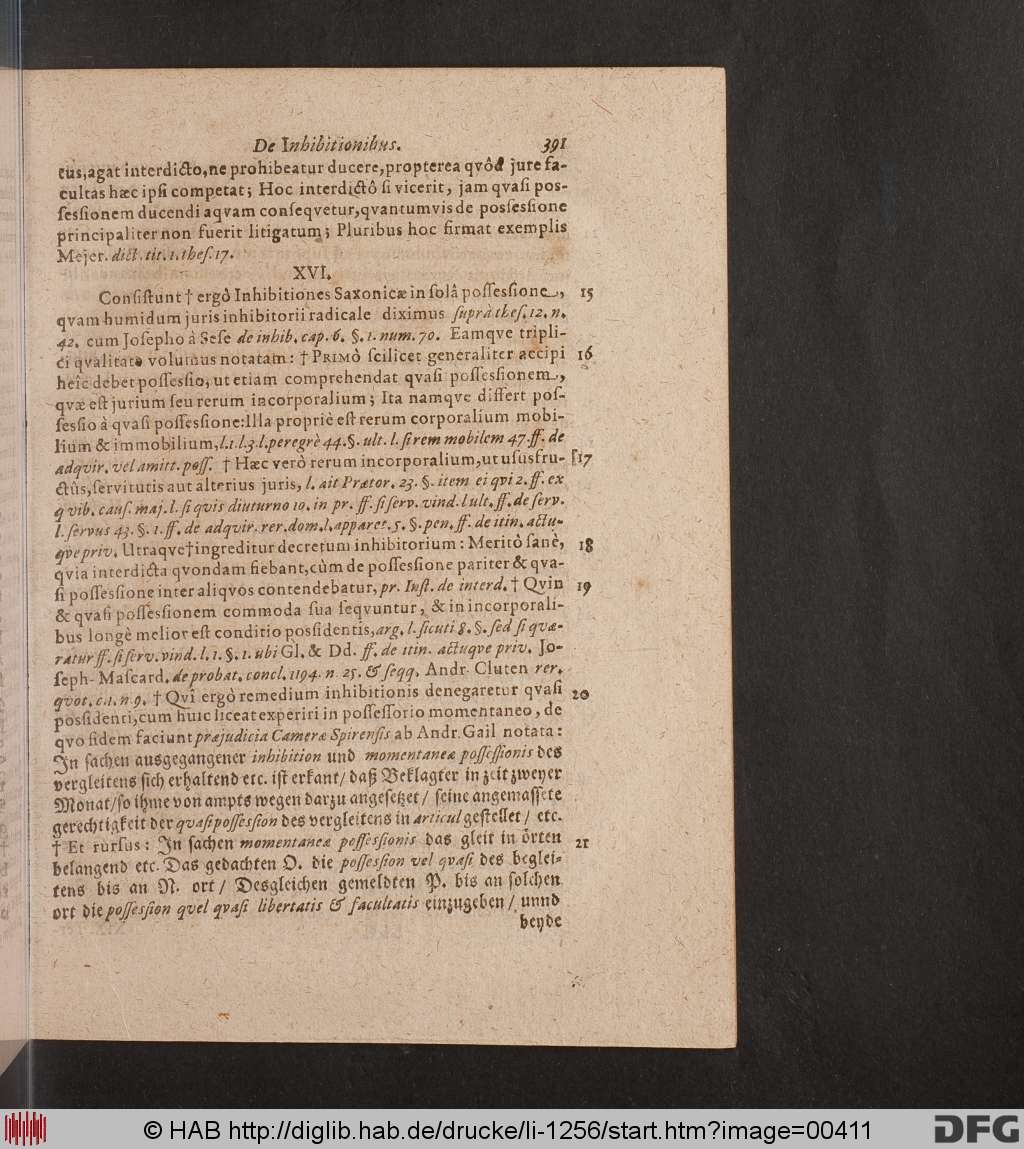 De Inhibitionibus. 391
tus, agat interdicto, ne prohibeatur ducere, propterea qvôd jure fa-
cultas hæc ipsi competat; Hoc interdictô si vicerit, jam qvasi pos-
sessionem ducendi aqvam conseqvetur, qvantumvis de possessione
principaliter non fuerit litigatum; Pluribus hoc firmat exemplis
Mejer. dict. tit. 1. thes. 17.
XVI.
Consistunt † ergò Inhibitiones Saxonicæ in solâ possessione, 15
qvam humidum juris inhibitorii radicale diximus suprà thes. 12. n.
42. cum Josepho à Sese de inhib. cap. 6. §. 1. num. 70. Eamqve tripli-
ci qvalitate volumus notatam: † PRIMÒ scilicet generaliter accipi 16
heîc debet possessio, ut etiam comprehendat qvasi possessionem,
qvæ est jurium seu rerum incorporalium; Ita namqve differt pos-
sessio à qvasi possessione: Illa propriè est rerum corporalium mobi-
lium & immobilium, l. 1. l. 3. l. peregrè 44. §. ult. l. si rem mobilem 47. ff. de
adqvir. vel amitt. poss. † Hæc verò rerum incorporalium, ut ususfru- 17
ctûs, servitutis aut alterius juris, l. ait Prætor. 23. §. item ei qvi 2. ff. ex
qvib. caus. maj. l. si qvis diuturno 10. in pr. ff. si serv. vind. l ult. ff. de serv.
l. servus 43. §. 1. ff. de adqvir. rer. dom. l. apparet. 5. §. pen. ff. de itin. actu-
qve priv. Utraqve † ingreditur decretum inhibitorium: Meritò sanè, 18
qvia interdicta qvondam fiebant, cùm de possessione pariter & qva-
si possessione inter aliqvos contendebatur, pr. Inst. de interd. † Qvin 19
& qvasi possessionem commoda sua seqvuntur, & in incorporali-
bus longè melior est conditio possidentis, arg. l. sicuti 8. §. sed si qvæ-
ratur ff. si serv. vind. l. 1. §. 1. ubi Gl. & Dd. ff. de itin. actuqve priv. Jo-
seph. Mascard. de probat. concl. 1194. n. 25. & seqq. Andr. Cluten rer.
qvot. c. 1. n 9. † Qvî ergò remedium inhibitionis denegaretur qvasi 20
possidenti, cum huic liceat experiri in possessorio momentaneo, de
qvo fidem faciunt præjudicia Cameræ Spirensis ab Andr. Gail notata:
In sachen ausgegangener inhibition und momentaneæ possessionis des
vergleitens sich erhaltend etc. ist erkant / daß Beklagter in zeit zweyer
Monat / so ihme von ampts wegen darzu angesetzet / seine angemassete
gerechtigkeit der quasi possession des vergleitens in articul gestellet / etc.
† Et rursus: In sachen momentaneæ possessionis das gleit in örten 21
belangend etc. Das gedachten O. die possession vel qvasi des beglei-
tens bis an N. ort / Desgleichen gemeldten P. bis an solchen
ort die possession qvel qvasi libertatis & facultatis einzugeben / unnd
beyde
© HAB http://diglib.hab.de/drucke/li-1256/start.htm?image=00411
DFG